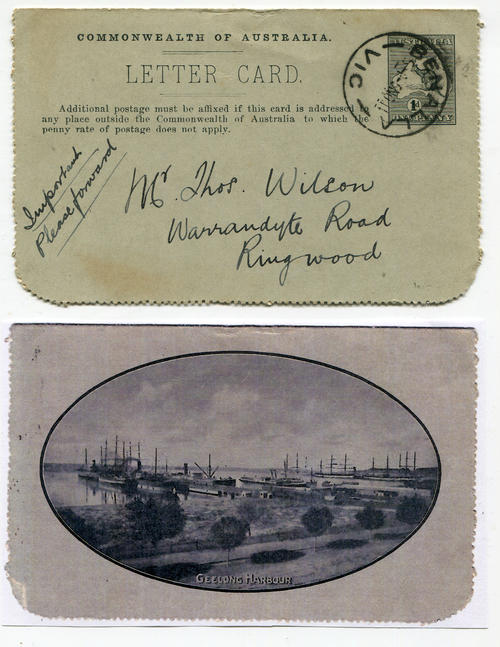 COMMONWEALTH OF AUSTRALIA.
LETTER CARD.
Additional postage must be affixed if this card is addressed to
any place outside the Commonwealth of Australia to which the
penny rate of postage does not apply.
AUSTRALIA
1d
ONE PENNY
BENALLA
VIC
Important
Please forward
Mr. Thos. Wilson
Warrandyte Road
Ringwood
GEELONG HARBOUR